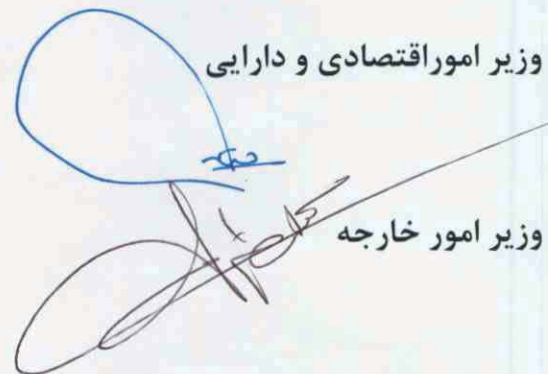 وزیر اموراقتصادی و دارایی
وزیر امور خارجه